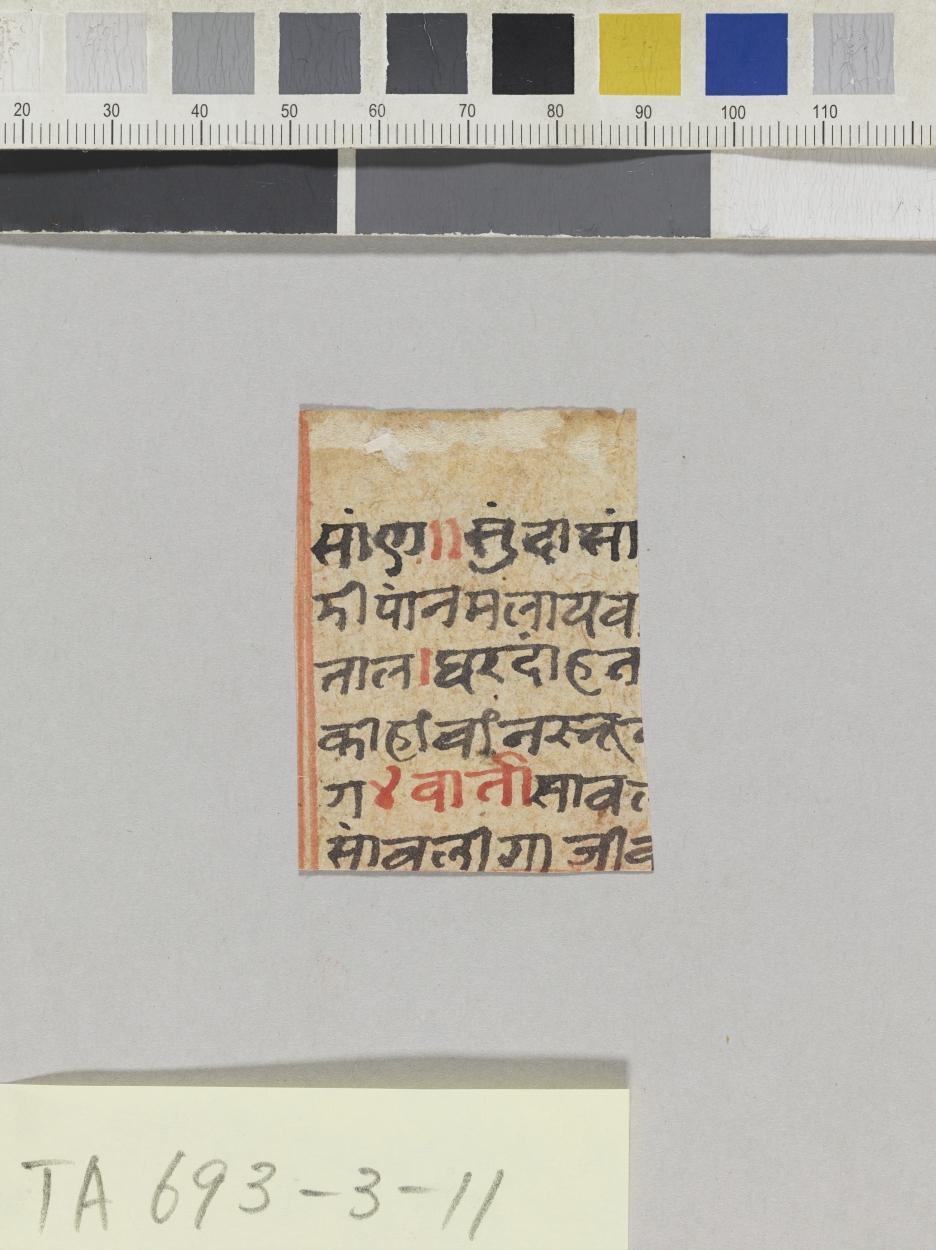 20 30 40 50 60 70 80 90 100 110
सांण॥सुंदासां
मीपांनमलायव
ताल।घरदांहत
कीहांवांन
ग४वातीसाव
सांवलीगाजीव
TA 693-3-11